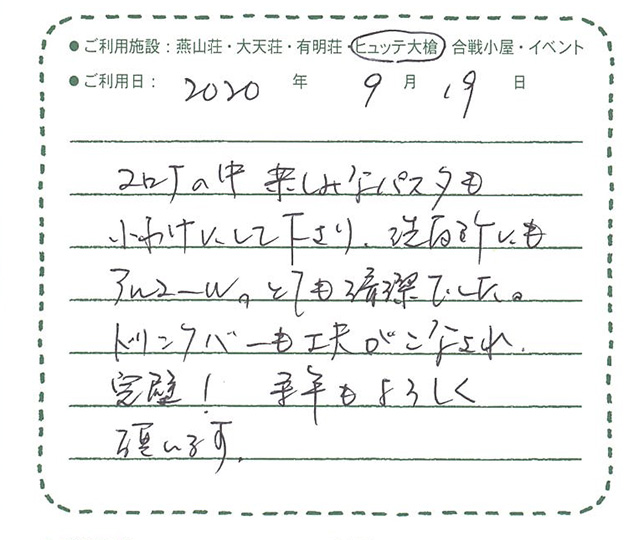 ●ご利用施設：燕山荘・大天荘・有明荘・ヒュッテ大槍 合戦小屋・イベント
●ご利用日： 2020 年 9 月 19 日
コロナの中 楽しみなパスタも
小わけにして下さり、洗面所にも
アルコール。とても清潔でした。
ドリンクバーも工夫がこなされ、
完璧！ 来年もよろしく
願います。